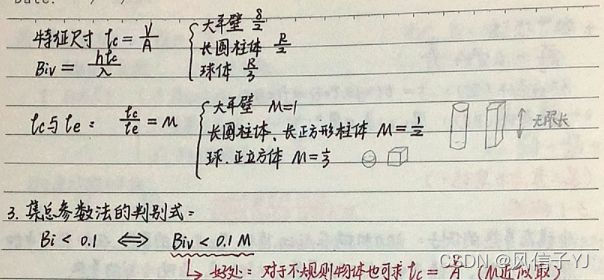 特征尺寸 lc = V/A
Biv = hlc/λ
大平壁 δ/2
长圆柱体 R/2
球体 R/3
lc与le： lc/le = M
大平壁 M=1
长圆柱体、长正方形柱体 M=1/2
球、正立方体 M=1/3
无限长
3. 集总参数法的判别式：
Bi < 0.1 ⇔ Biv < 0.1 M
↳ 好处：对于不规则物体也可求 lc =
CSDN @风信子YJ